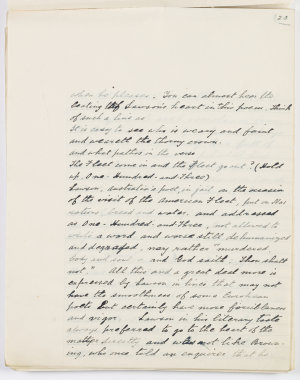 (20
when he pleases. You can almost hear the
beating of Lawson's heart in this poem. Think
of such a line as
It is easy to see who is weary and faint
and weareth the thorny crown.
and what pathos in the verse
The Fleet come in and the Fleet goes out? (Hold
up, One-Hundred-and-Three)
Lawson, Australia's poet, in jail on the occasion
of the visit of the American Fleet, put on
rations, bread and water, and addressed
as One-Hundred-and-Three, not allowed to
a word and worse still dehumanized
and degraded, nay rather "murdered
body and soul - and God saith. Thou shalt
not". All this and a great deal more is
expressed by Lawson in lines that may not
have the smoothness of some
poets but certainly have more forcefulness
and vigor. Lawson in his literary taste
always preferred to go to the heart of the
matter directly and was not like Brown-
ing, who once told an enquirer that he